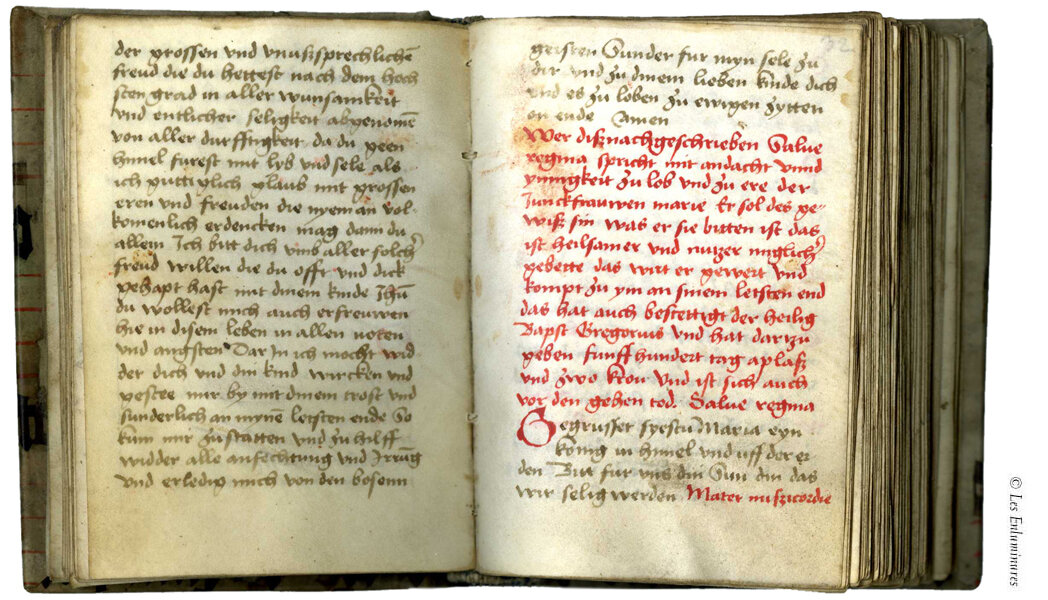 der grossen vnd vnußsprechlichē
freud die du hettest nach dem hoch
sten grad in aller wunsamkeit
vnd entlicher seligkeit abgenomē
von aller durfftigkeit da du geen
himel furest mit lyb vnd sele als
ich gutticlich glaub mit grossen
eren vnd freuden die nyeman vol
komenlich erdencken mag dann du
allein Ich bitt dich vmb aller solch
freud willen die du offt vnd dick
gehapt hast mit dinem kinde Jhū
du wollest mich auch erfreuwen
hie in disem leben in allen noten
vnd angsten Dar In ich mocht wid
der dich vnd din kind wircken vnd
gestee mir by mit dinem trost vnd
sunderlich an mynē letsten ende So
kum mir zu statten vnd zu hilff
widder alle anfechtung vnd Irrūg
vnd erledig mich von den bosenn
geisten Sunder fur myn sele zu
dir vnd zu dinem lieben kinde dich
vnd es zu loben zu ewigen zytten
on ende Amen
Wer diß nachgeschrieben Salue
regina spricht mit andacht vnnd
ynnigkeit zu lob vnd zu ere der
Junckfrauwen marie Er sol des ge
wiß sin was er sie bitten ist das
ist heilsamer vnd nutzer
gebette das wirt er gewert vnd
kompt zu ym an sinem letsten end
das hat auch bestettigt der heilig
Bapst Gregorius vnd hat dartzu
geben funff hundert tag aplaß
vnd zwo kron vnd ist sich auch
vor den gehen tod. Salue regina
Gegrusset syestu Maria eyn
konig in himel vnd uff der er
den Bitt fur vns din Sun din das
wir selig werden Mater misericordie
© Les Enluminures